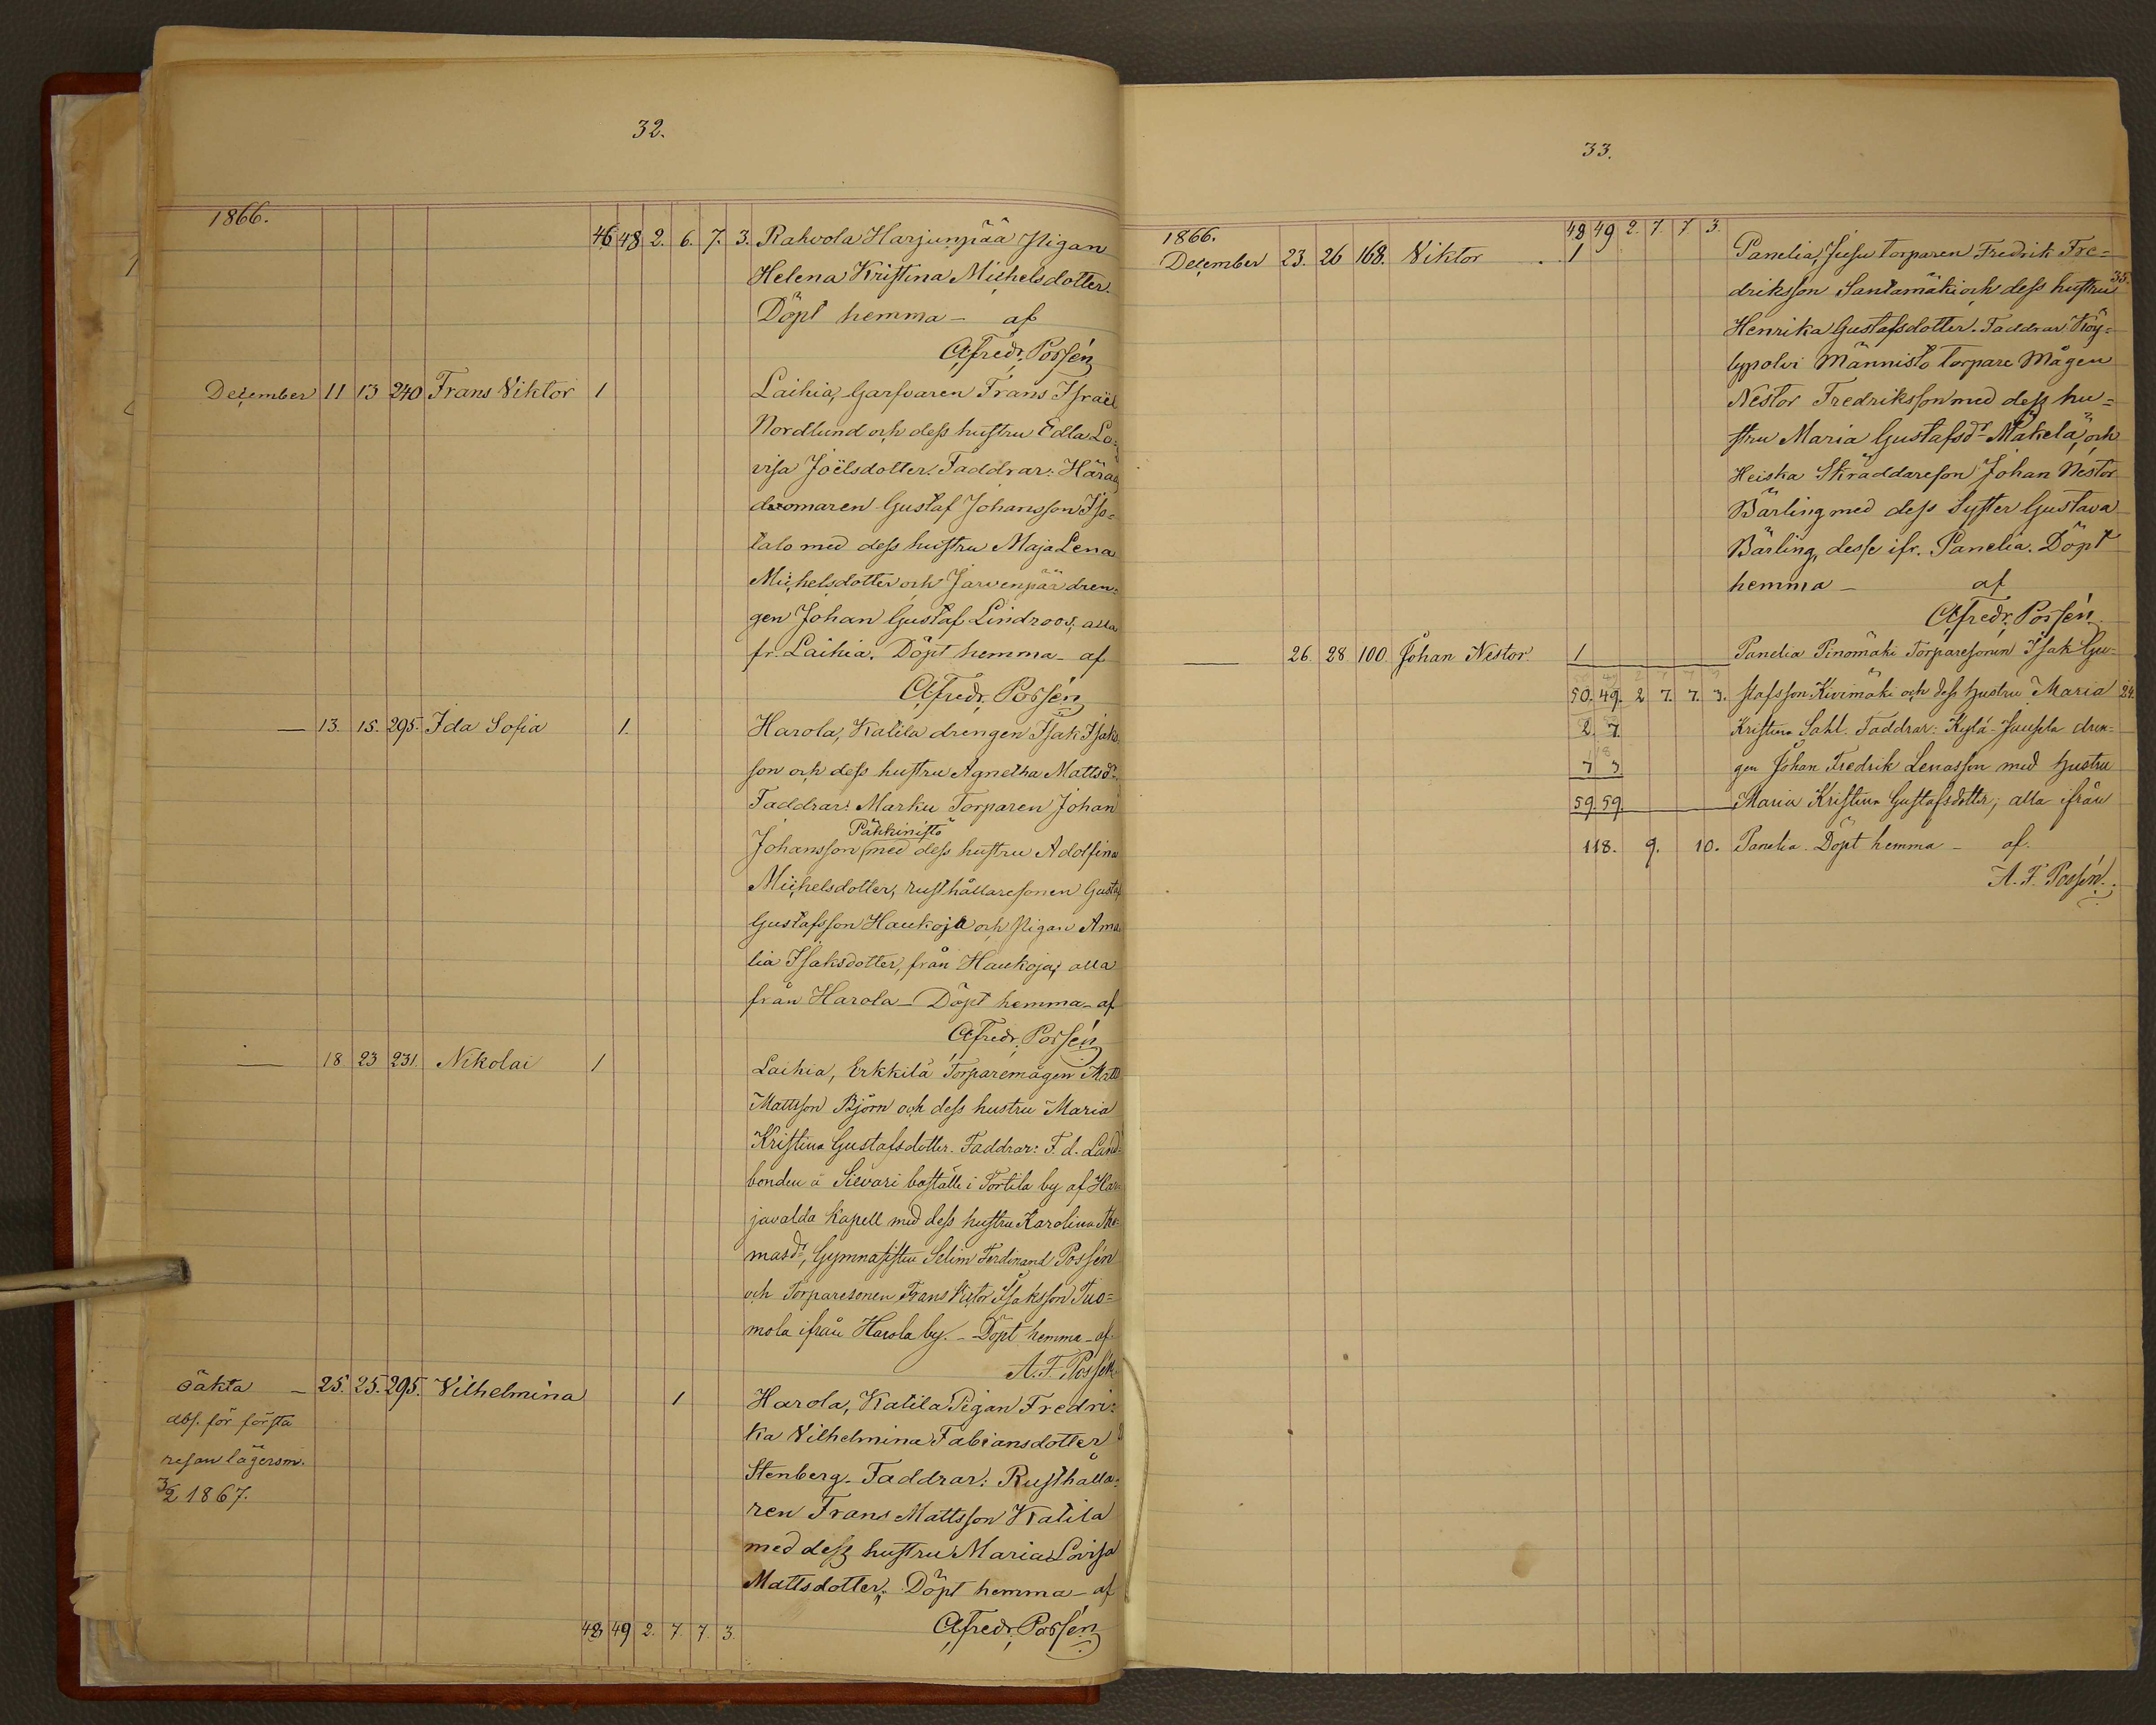 32.
1866.
46 48 2. 6. 7. 3. Rahvola Harjunpää Pigan
Helena Kristina Michelsdotter.
Döpt hemma – af
A. Fredr. Possén
December 11 13 240 Frans Viktor 1 Laihia, Garfvaren Frans Israël
Nordlund och dess hustru Edla Lo-
visa Joëlsdotter. Faddrar: Härads
domaren Gustaf Johansson Iso-
talo med dess hustru Maja Lena
Michelsdotter och Järvenpää dren-
gen Johan Gustaf Lindroos, alla
fr. Laihia. Döpt hemma – af
A. Fredr. Possén
— 13. 15. 295. Ida Sofia 1. Harola, Katila drengen Isak Isaks-
son och dess hustru Agnetha Mattsdr
Faddrar: Marku Torparen Johan
Päkkinistö
Johansson med dess hustru Adolfina
Michelsdotter, rusthållaresonen Gustaf
Gustafsson Haukoja och Pigan Ama-
lia Isaksdotter, från Haukoja, alla
från Harola – Döpt hemma – af
A. Fredr. Possén
— 18 23 231. Nikolai 1 Laihia, Erkkilä Torparemågen Matts
Mattsson Björn och dess hustru Maria
Kristina Gustafsdotter. Faddrar: F. d. Land-
bonden å Sievari boställe i Torttila by af Har-
javalda Kapell med dess hustru Karolina Tho-
masdr, Gymnasisten Selim Ferdinand Possén
och Torparesonen Frans Victor Isaksson Tuo-
mola ifrån Harola by. – Döpt hemma – af
A. F. Possén
oäkta – 25. 25. 295. Vilhelmina 1 Harola, Katila Pigan Fredri-
abs. för första
ka Vilhelmina Fabiansdotter
resan lägersm.
Stenberg. Faddrar: Rusthålla-
3/2 1867.
ren Frans Mattsson Katila
med dess hustru Maria Lovisa
Mattsdotter. Döpt hemma – af
48 49 2. 7. 7. 3. A. Fredr. Possén
33.
1866. 48 49 2. 7. 7. 3.
December 23. 26 168. Viktor 1 Panelia, Jusu torparen Fredrik Fre-
driksson Santamäki och dess hustru 35.
Henrika Gustafsdotter. Faddrar: Köy-
lypolvi Männistö Torpare Mågen
Nestor Fredriksson med dess hu-
stru Maria Gustafsdr Mäkelä, och
Heiska Skräddareson Johan Nestor
Bärling med dess Syster Gustava
Bärling, desse ifr. Panelia. Döpt
hemma – af
A. Fredr. Possén
— 26. 28 100. Johan Nestor. 1 Panelia Pinomäki Torparesonen Isak Gu-
50. 49. 2 7. 7. 3. stafsson Kivimäki och dess hustru Maria 24.
2. 7. Kristina Sahl. Faddrar: Kylä-Jaussla dren-
7 3 gen Johan Fredrik Lenasson med hustru
59. 59. Maria Kristina Gustafsdotter, alla ifrån
118. 9. 10. Panelia. Döpt hemma – af.
A. F. Possén.